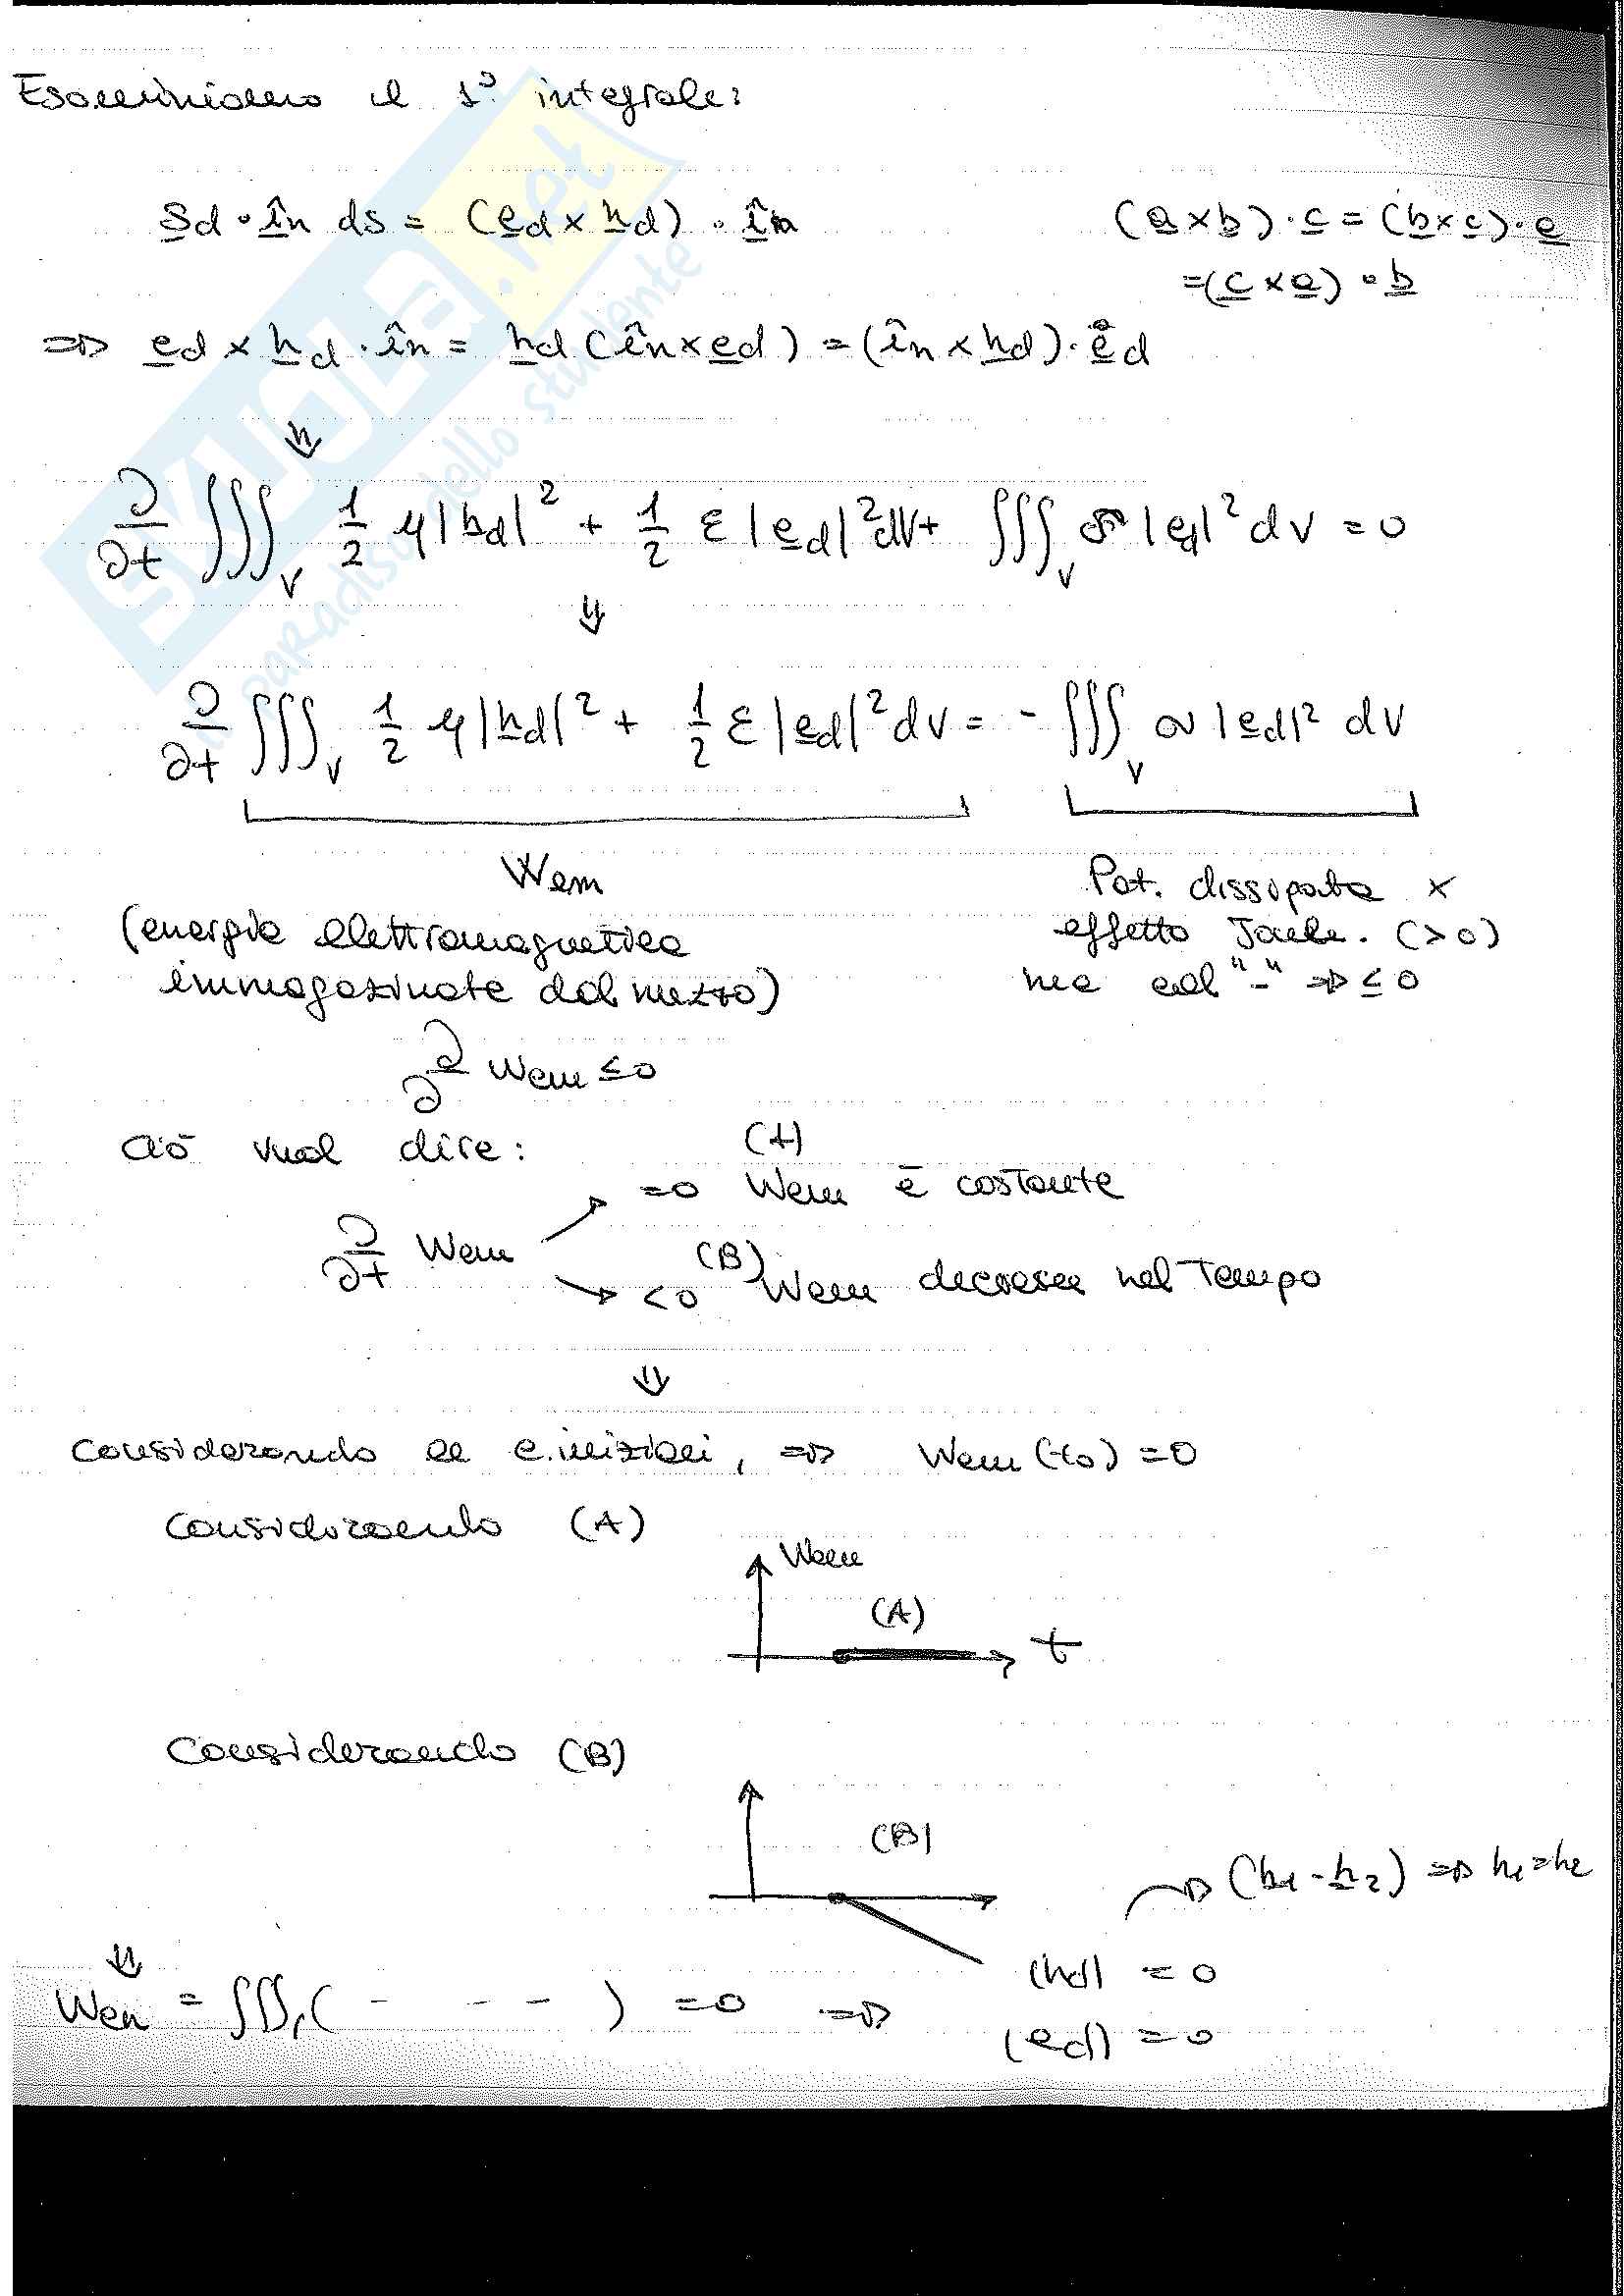 Esaminiamo il 1° integrale:
S̲d · î̲n ds = (e̲d × h̲d) · î̲n
(a̲ × b̲) · c̲ = (b̲ × c̲) · a̲
= (c̲ × a̲) · b̲
⇒ e̲d × h̲d · în = h̲d (în × e̲d) = (în × h̲d) · e̲d
⇓
∂/∂t ∭V 1/2 μ|hd|² + 1/2 ε|e̲d|² dV + ∭V σ|ed|² dV = 0
⇓
∂/∂t ∭V 1/2 μ|h̲d|² + 1/2 ε|e̲d|² dV = - ∭V σ|e̲d|² dV
Wem
(energia elettromagnetica
immagazinata dal mezzo)
Pot. dissipata x
effetto Joule. (>0)
ma col "-" ⇒ ≤ 0
∂/∂ Wem ≤ 0
Ciò vuol dire:
(A)
=0 Wem è costante
∂/∂t Wem
(B)
<0 Wem decresce nel Tempo
⇓
Considerando le c. iniziali, ⇒ Wem (t0) = 0
Considerando (A)
Wem
(A)
t
Considerando (B)
(B)
(h1 - h̲2) ⇒ h1 = h2
⇓
Wem = ∭V ( - - - - ) = 0 ⇒
|hd| = 0
|ed| = 0
SKUOLA.net
paradiso dello studente